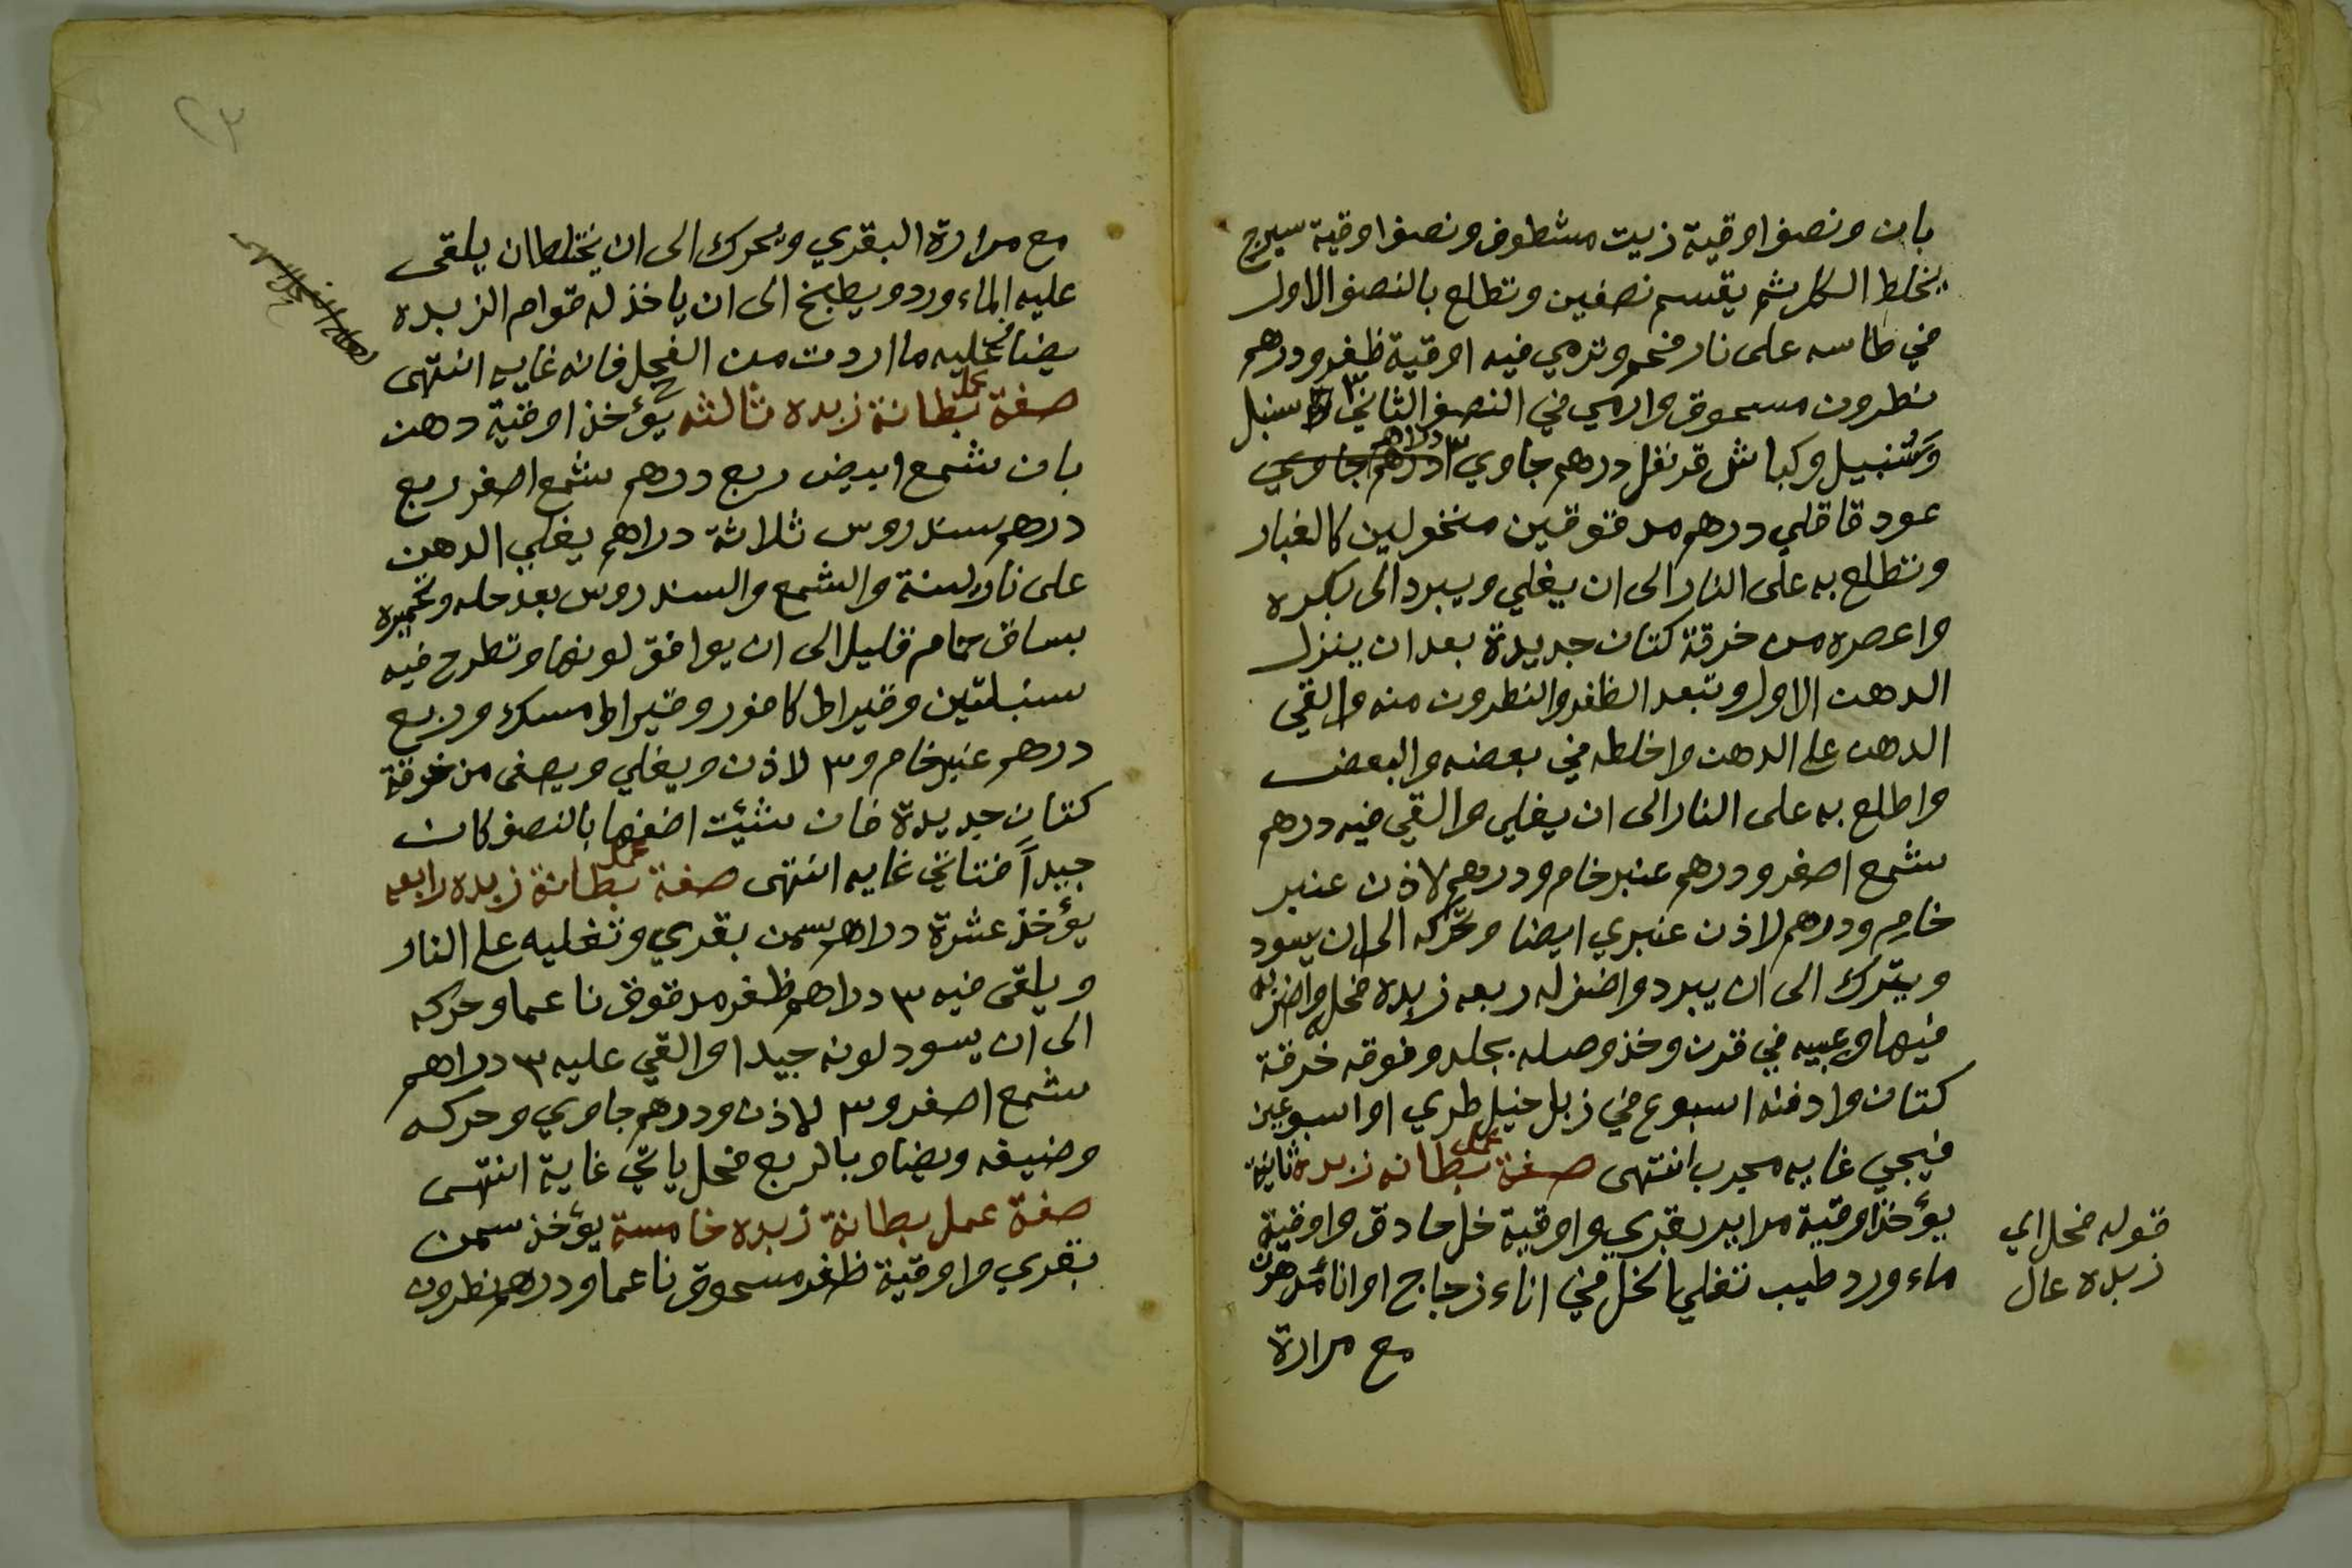 بان ونصف اوقية زيت مشطوف ونصف اوقية سيرج
يخلط الكل ثم يقسم نصفين وتطلع بالنصف الاول
في طاسه على نار فحم وترمي فيه اوقية ظفر ودرهم
نطرون مسحوق وارمي في النصف الثاني ٣ سنبل
وسُنبيل وكباش قرنفل درهم جاوي ٣ دراهم
عود قاقلي درهم مدقوقين منخولين كالغبار
وتطلع به على النار الى ان يغلي ويبرد الى بكره
واعصره من خرقة كتان جديدة بعد ان ينزل
الدهن الاول وتبعد الظفر والنطرون منه والقي
الدهن على الدهن واخلطه في بعضه والبعض
واطلع به على النار الى ان يغلي والقي فيه درهم
شمع اصفر ودرهم عنبر خام ودرهم لاذن عنبر
خام ودرهم لاذن عنبري ايضا وتحركه الى ان يسود
ويترك الى ان يبرد واضف له ربعه زبده فحل واضربه
فيها وعبيه في قرن وخذ وصله بجلد وفوقه خرقة
كتان وادفنه اسبوع في زبل خيل طري او اسبوعين
فيجي غايه مجرب انتهى صفة عمل بطانه زبده ثانية
يؤخذ اوقية مراير بقري واوقية خل حادق واوقية
ماء ورد طيب تغلي الخل في اناء زجاج او اناء مدهون
مع مرارة
قوله فحل اي
زبده عال
٢٣
مع مرارة البقري ويحرك الى ان يختلطان يلقى
عليه الماء ورد ويطبخ الى ان ياخذ له قوام الزبده
يضاف عليه ما اردت من الفحل فانه غايه انتهى
صفة عمل بطانة زبده ثالثه يؤخذ اوقية دهن
بان شمع ابيض ربع درهم شمع اصفر ربع
درهم سندروس ثلاثة دراهم يغلي الدهن
على نار لينة والشمع والسندروس بعد حله وتحميره
بساق حمام قليل الى ان يوافق لونها وتطرح فيه
سنبلتين وقيراط كافور وقيراط مسك وربع
درهم عنبر خام و٣ لاذن ويغلي ويصفى من خرقة
كتان جديدة فان شئت اضفها بالنصف كان
جيداً فتاتي غايه انتهى صفة عمل بطانة زبده رابعه
يؤخذ عشرة دراهم سمن بقري وتغليه على النار
ويلقى فيه ٣ دراهم ظفر مدقوق ناعما وحركه
الى ان يسود لونه جيدا والقي عليه ٣ دراهم
شمع اصفر و٣ لاذن ودرهم جاوي وحركه
وضيفه ويضاف بالربع فحل ياتي غاية انتهى
صفة عمل بطانة زبده خامسة يؤخذ سمن
بقري واوقية ظفر مسحوق ناعما ودرهم نطرون